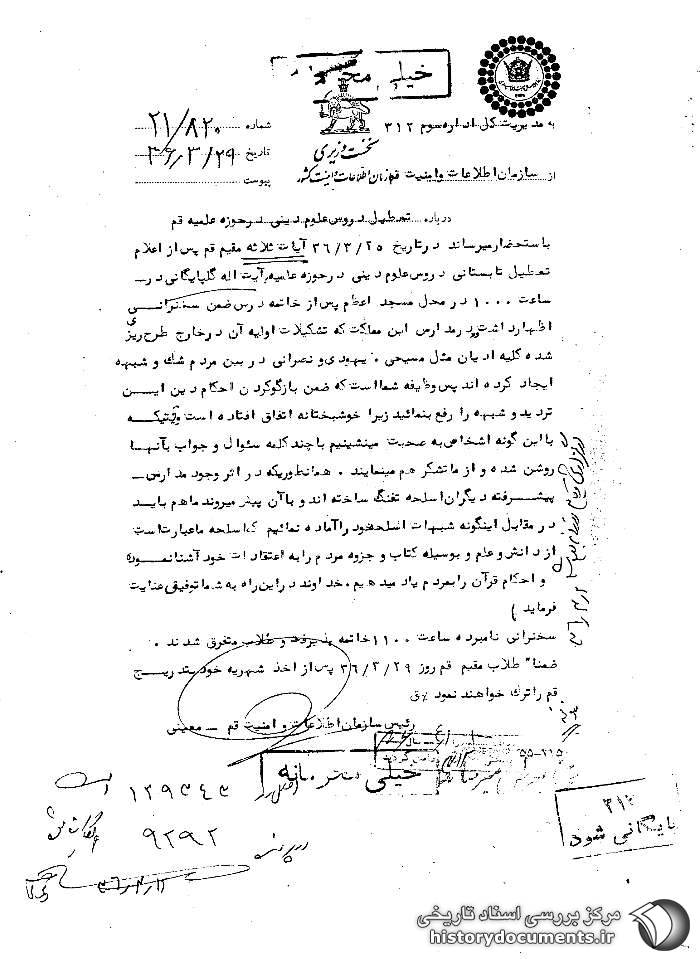 خیلی محرمانه
به مدیریت کل اداره سوم ۳۱۲
شماره ۲۱/۸۲۰
نخست وزیری
تاریخ ۳۶/۳/۲۹
سازمان اطلاعات و امنیت کشور
از سازمان اطلاعات و امنیت قم
پیوست
درباره تعطیل دروس علوم دینی در حوزه علمیه قم
باستحضار میرساند در تاریخ ۳۶/۳/۲۵ آیات ثلاثه مقیم قم پس از اعلام
تعطیل تابستانی دروس علوم دینی در حوزه علمیه، آیت اله گلپایگانی در
ساعت ۱۰۰۰ در محل مسجد اعظم پس از خاتمه درس ضمن سخنرانی
اظهار داشت در مدارس این مملکت که تشکیلات اولیه آن در خارج طرح ریزی
شده کلیه ادیان مثل مسیحی . یهودی و نصرانی در بین مردم شک و شبهه
ایجاد کرده اند پس وظیفه شما است که ضمن بازگو کردن احکام دین این
تردید و شبهه را رفع بنمائید زیرا خوشبختانه اتفاق افتاده است وقتیکه
با این گونه اشخاص به صحبت مینشینیم با چند کلمه سئوال و جواب بآنها
روشن شده و از ما تشکر هم مینمایند . همانطوریکه در اثر وجود مدارس
پیشرفته دیگران اسلحه تفنگ ساخته اند و با آن پیش میروند ما هم باید
در مقابل اینگونه شبهات اسلحه خود را آماده نمائیم که اسلحه ما عبارت است
از دانش و علم و بوسیله کتاب و جزوه مردم را به اعتقادات خود آشنا نموده
و احکام قرآن را بمردم یاد میدهیم . خداوند در این راه به شما توفیق عنایت
فرماید )
سخنرانی نامبرده ساعت ۱۱۰۰ خاتمه پذیرفت و طلاب متفرق شدند .
ضمنا" طلاب مقیم قم روز ۳۶/۳/۲۹ پس از اخذ شهریه خود بتدریج
قم را ترک خواهند نمود
رئیس سازمان اطلاعات و امنیت قم – معینی
۵۵-۲۱۵
خیلی محرمانه
۳۱۲
بایگانی شود
۱۲۹۳۴۳
۹۲۹۲
مرکز بررسی اسناد تاریخی
historydocuments.ir